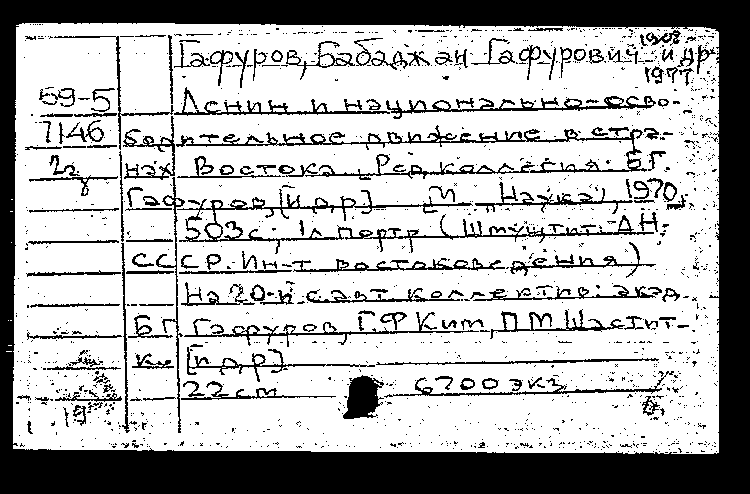 1908-
Гафуров, Бабаджан Гафурович и др
1977
59-5
Ленин и национально-осво-
7146
бодительное движение в стра-
нах Востока [Ред. коллегия: Б.Г.
Гафуров, [и др.] [М "Наука", 1970.
503 с; 1л портр (Шт. тит: АН.
СССР. Ин-т востоковедения)
На 20-й с авт коллектив: акад.
БГ Гафуров, Г.Ф Ким, П М Шастит-
ко [и др.]
22 cm 6700 экз
19